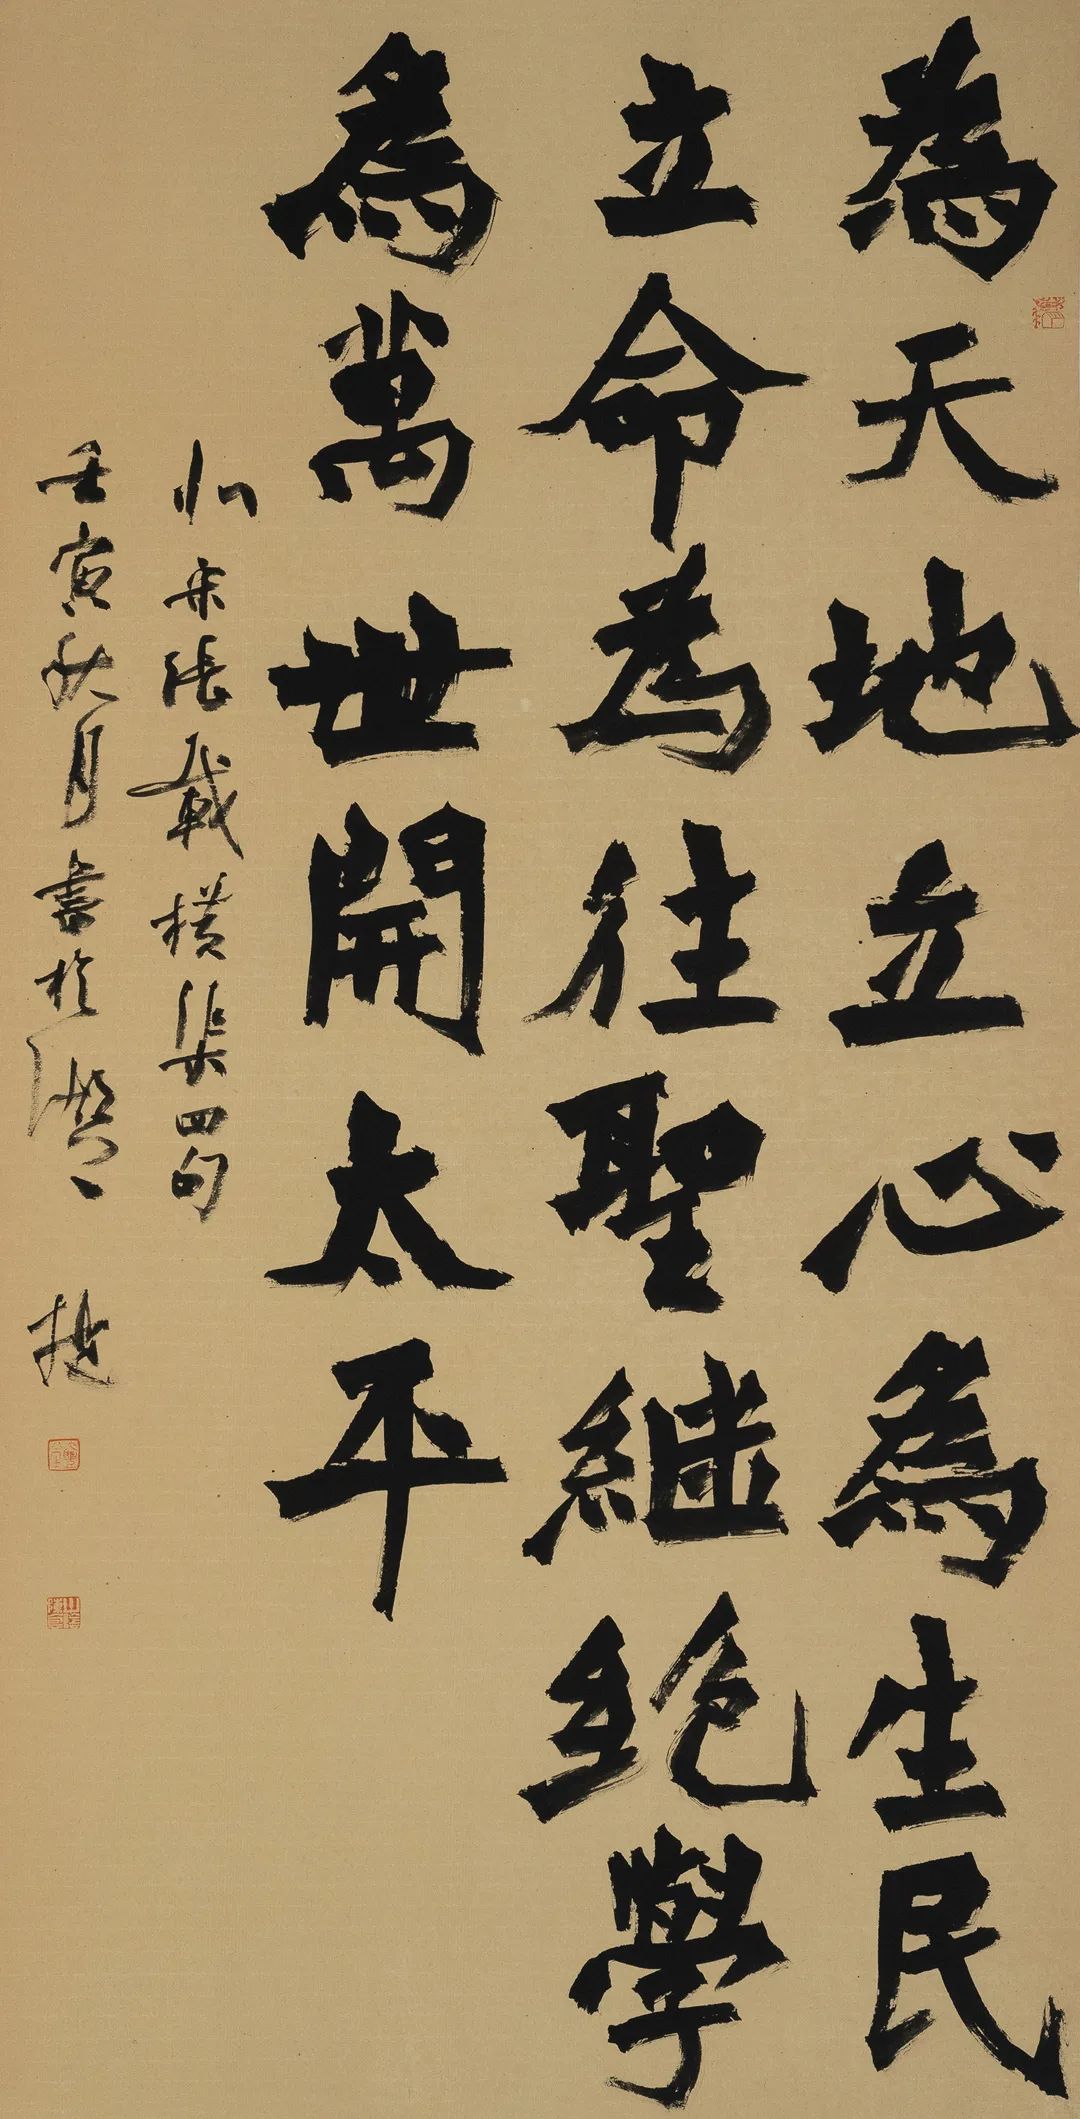 為天地立心為生民
立命為往聖繼絕學
為萬世開太平
北宋張載橫渠四句
壬寅秋月書於
捷